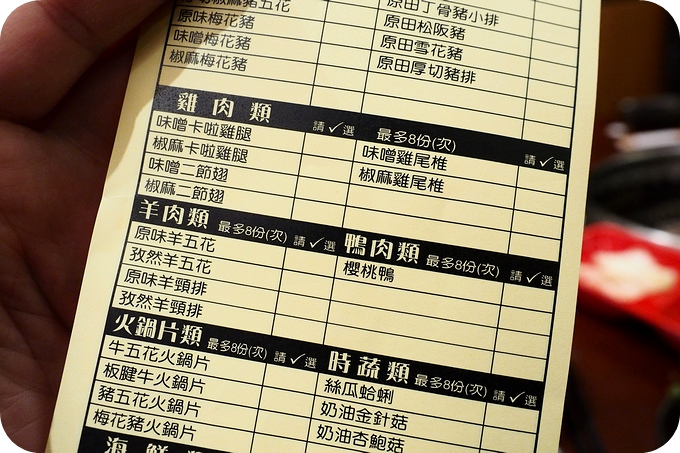 麻豬五花
原味梅花豬
味噌梅花豬
椒麻梅花豬
原田丁骨豬小排
原田松阪豬
原田雪花豬
原田厚切豬排
雞肉類 請✓選 最多8份(次) 請✓選
味噌卡啦雞腿
椒麻卡啦雞腿
味噌二節翅
椒麻二節翅
味噌雞尾椎
椒麻雞尾椎
羊肉類 最多8份(次) 請✓選
原味羊五花
孜然羊五花
原味羊頸排
孜然羊頸排
鴨肉類 最多8份(次) 請✓選
櫻桃鴨
火鍋片類 最多8份(次) 請✓選
牛五花火鍋片
板腱牛火鍋片
豬五花火鍋片
梅花豬火鍋片
時蔬類 最多8份(次) 請✓選
絲瓜蛤蜊
奶油金針菇
奶油杏鮑菇
海鮮類